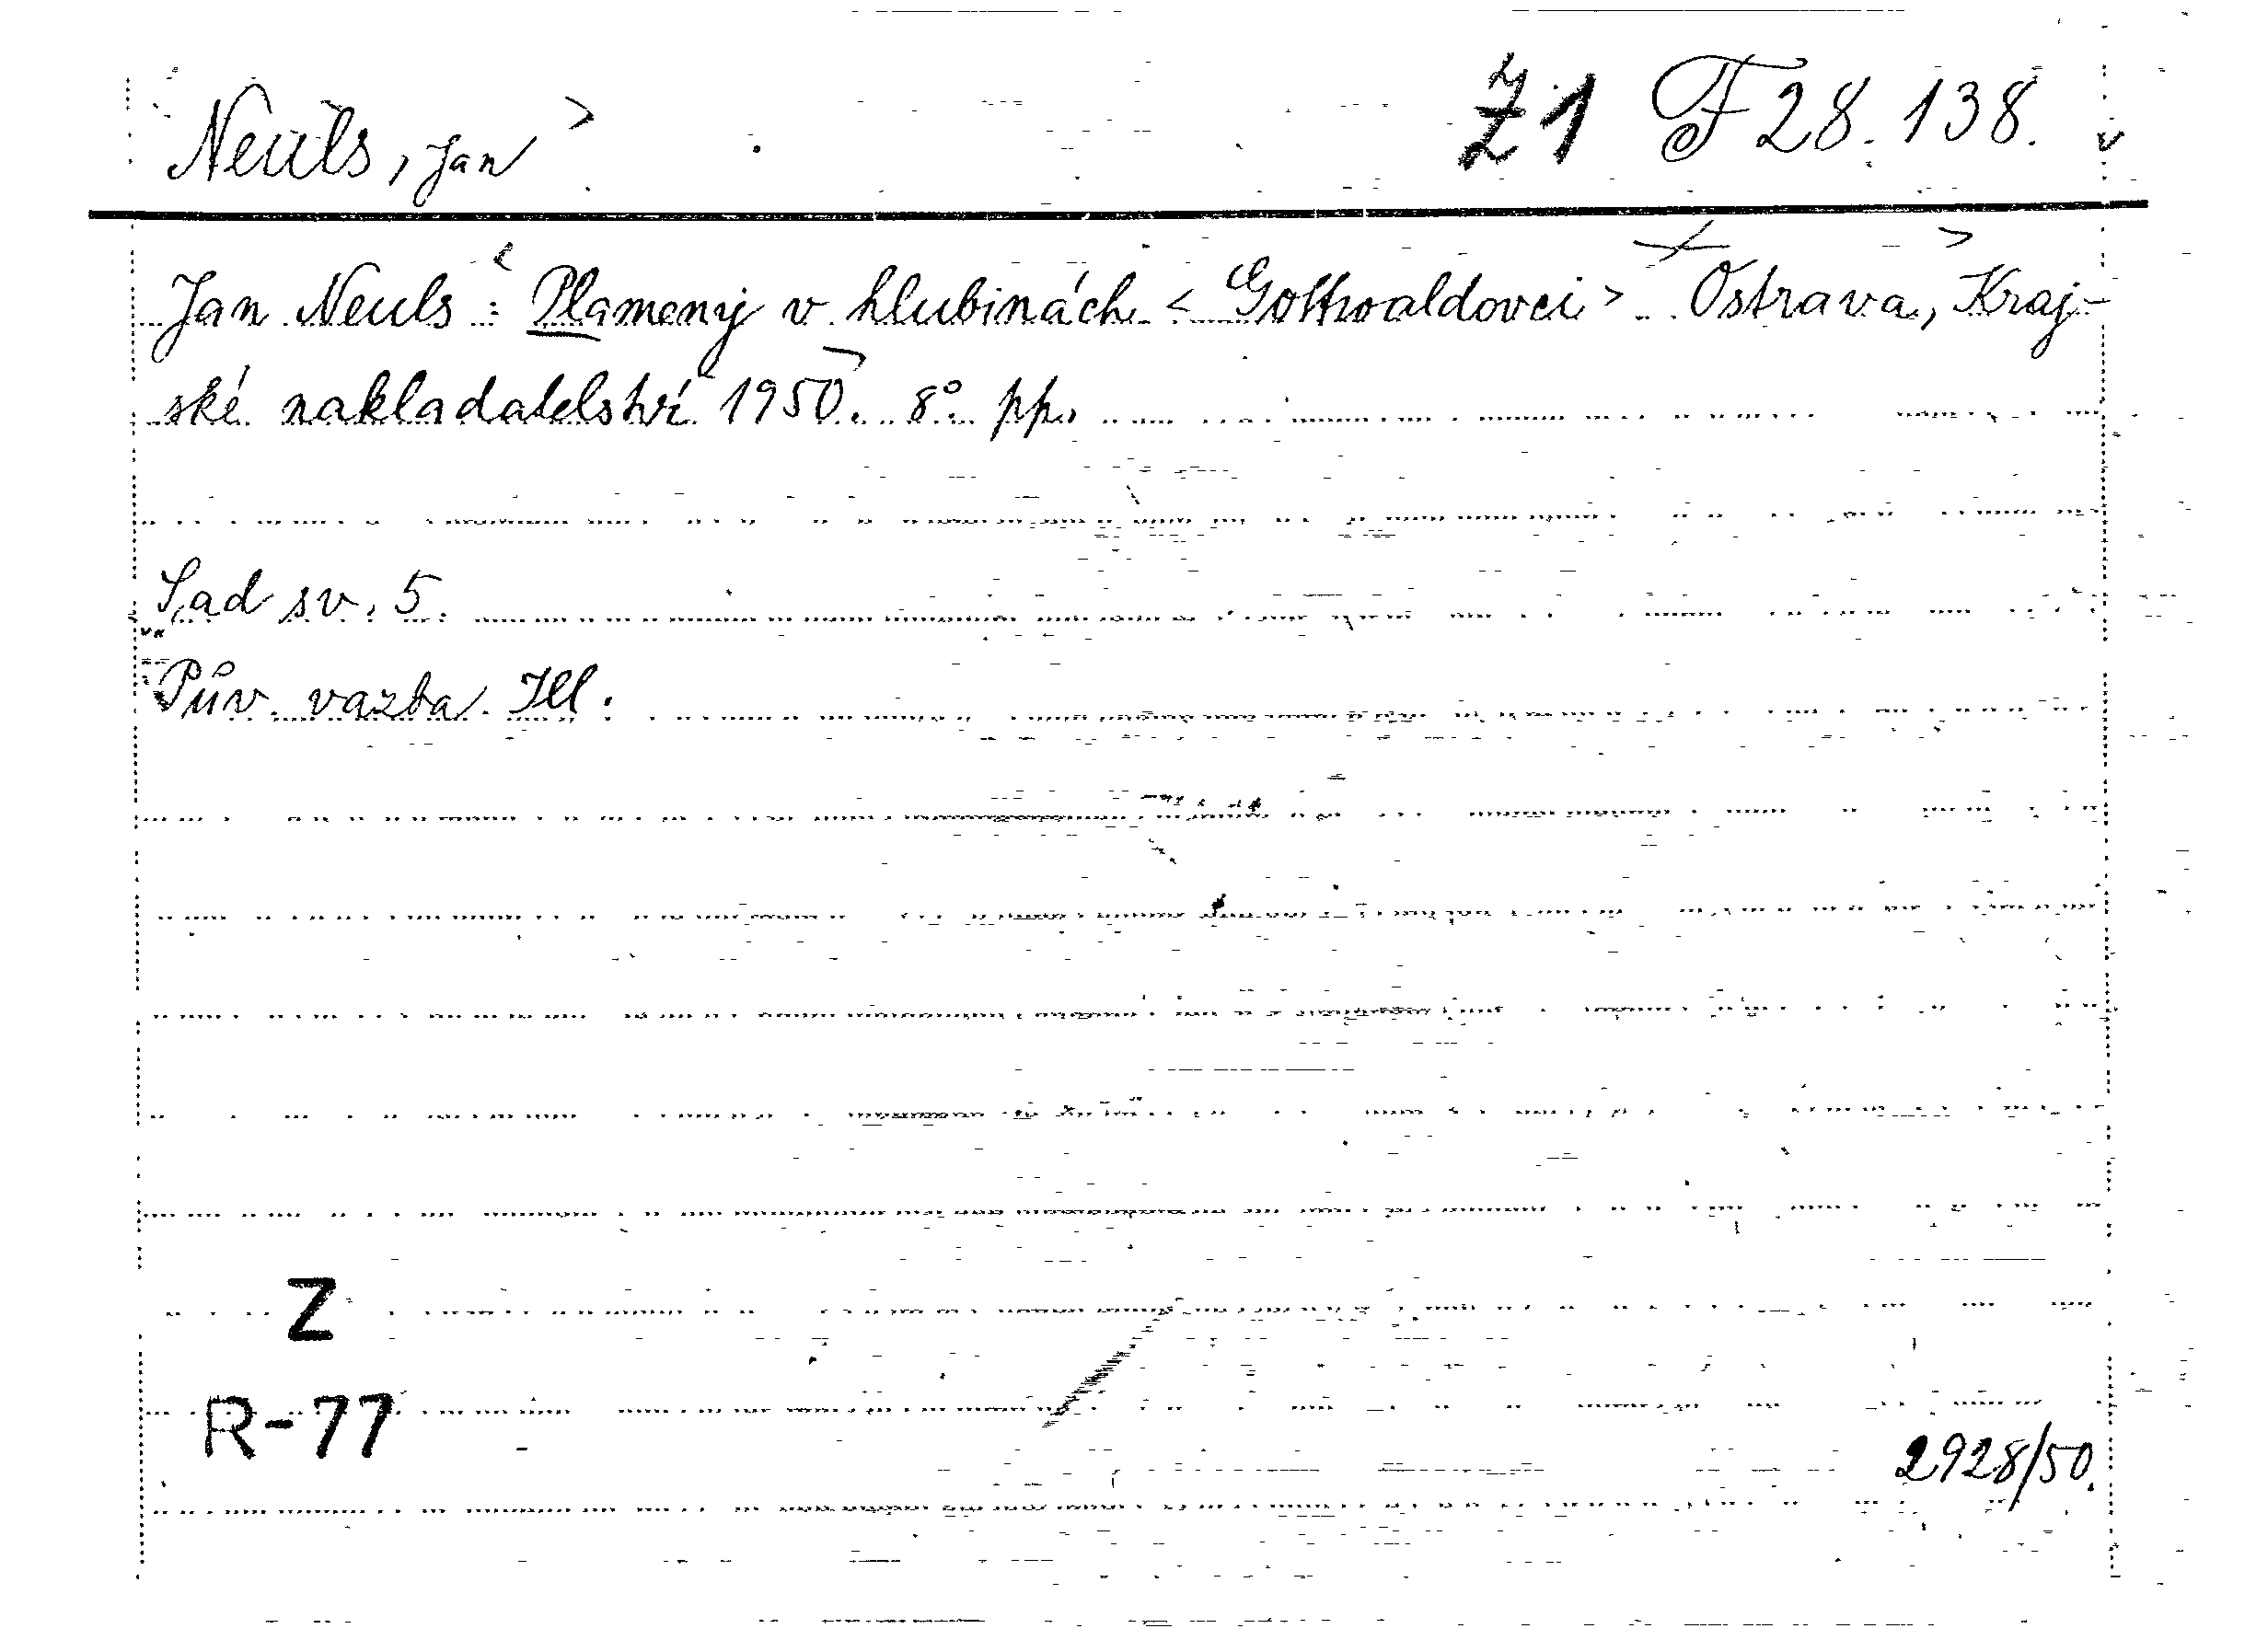 Neuls, Jan > Ž 1 F 28.138.
Jan Neuls : Plameny v hlubinách < Gottwaldovci > Ostrava, Kraj-
ské nakladatelství 1950. 8°. pp.
Sad sv. 5.
Pův. vazba. Ill.
Z
R-77
2928/50.